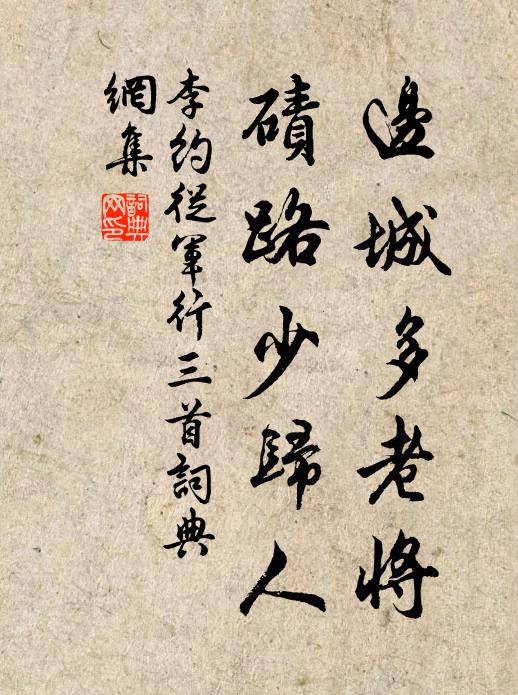 邊城多老將
磧路少歸人
李約從軍行三首詞典
網集
詞典
网印